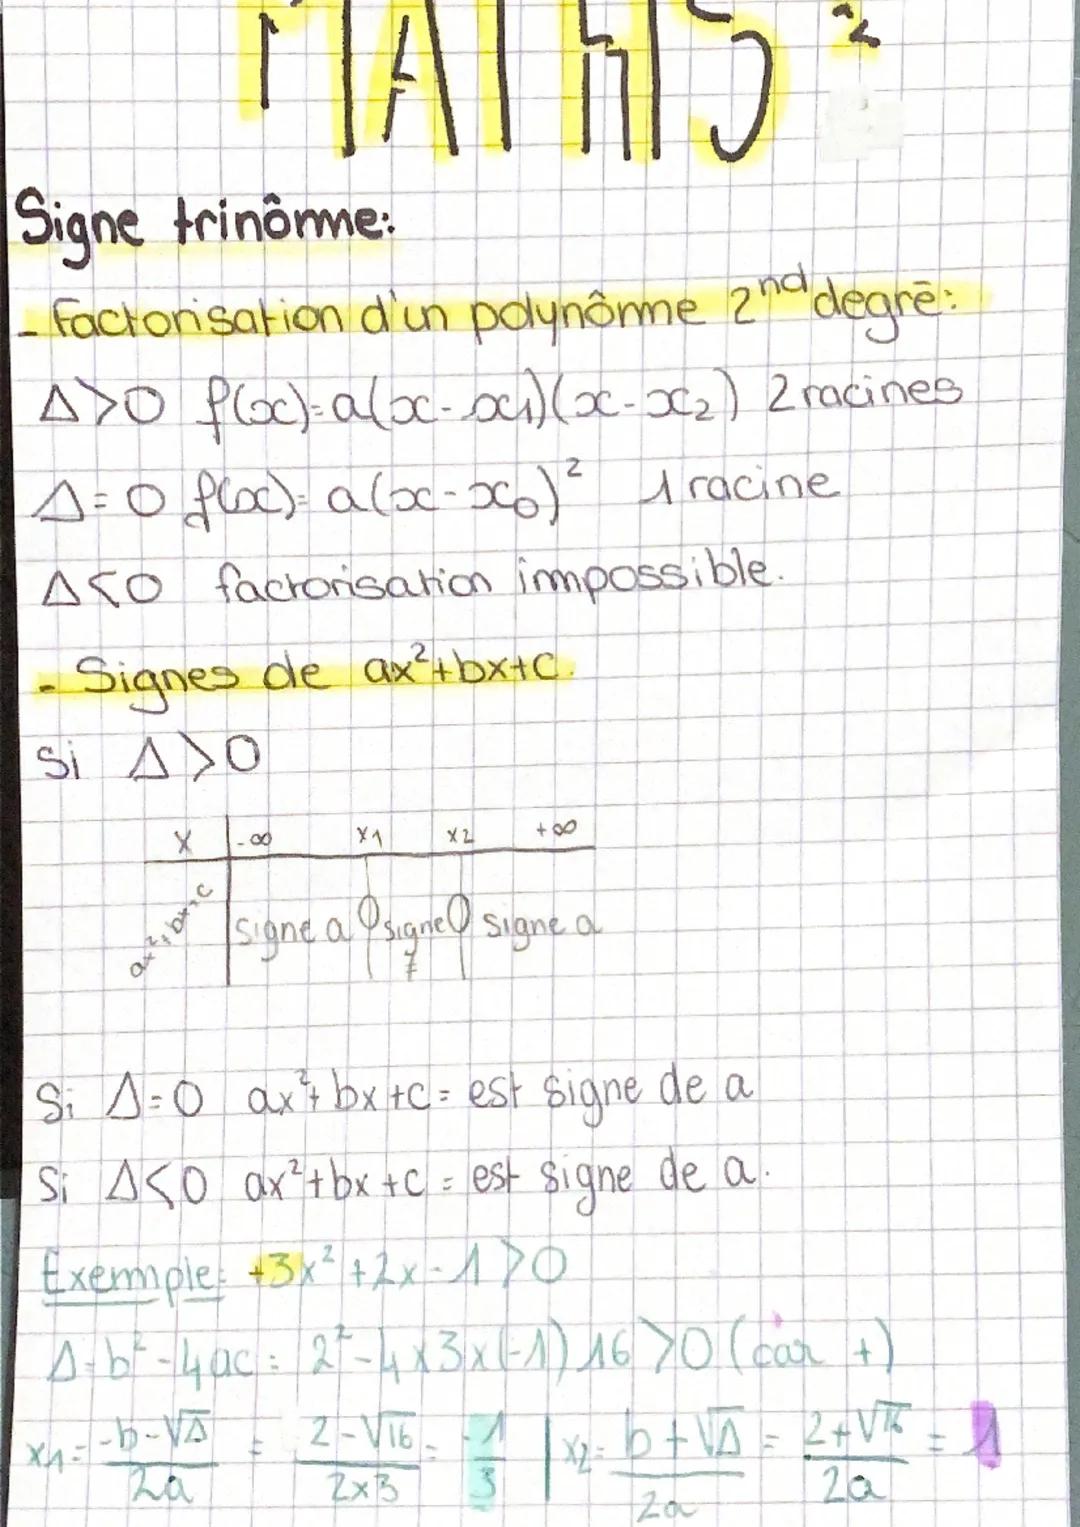 MATHS 2
Signe trinôme:
- Factorisation d'un polynôme 2nd degré:
Δ>0 f(x)=a(x-x1)(x-x2) 2 racines
Δ=0 f(x)= a(x-x0)² 1 racine
Δ<0 factorisation impossible.
- Signes de ax²+bx+c.
Si Δ>0
x -∞ x1 x2 +∞
ax²+bx+c signe a 0 signe ≠ 0 signe a
Si Δ=0 ax²+bx+c= est signe de a
Si Δ<0 ax²+bx+c = est signe de a.
Exemple: +3x²+2x-1>0
Δ=b²-4ac = 2²-4x3x(-1) 16 >0 (car +)
x1= -b-√Δ / 2a = 2-√16 / 2x3 = -1/3 | x2= b+√Δ / 2a = 2+√16 / 2a = 1